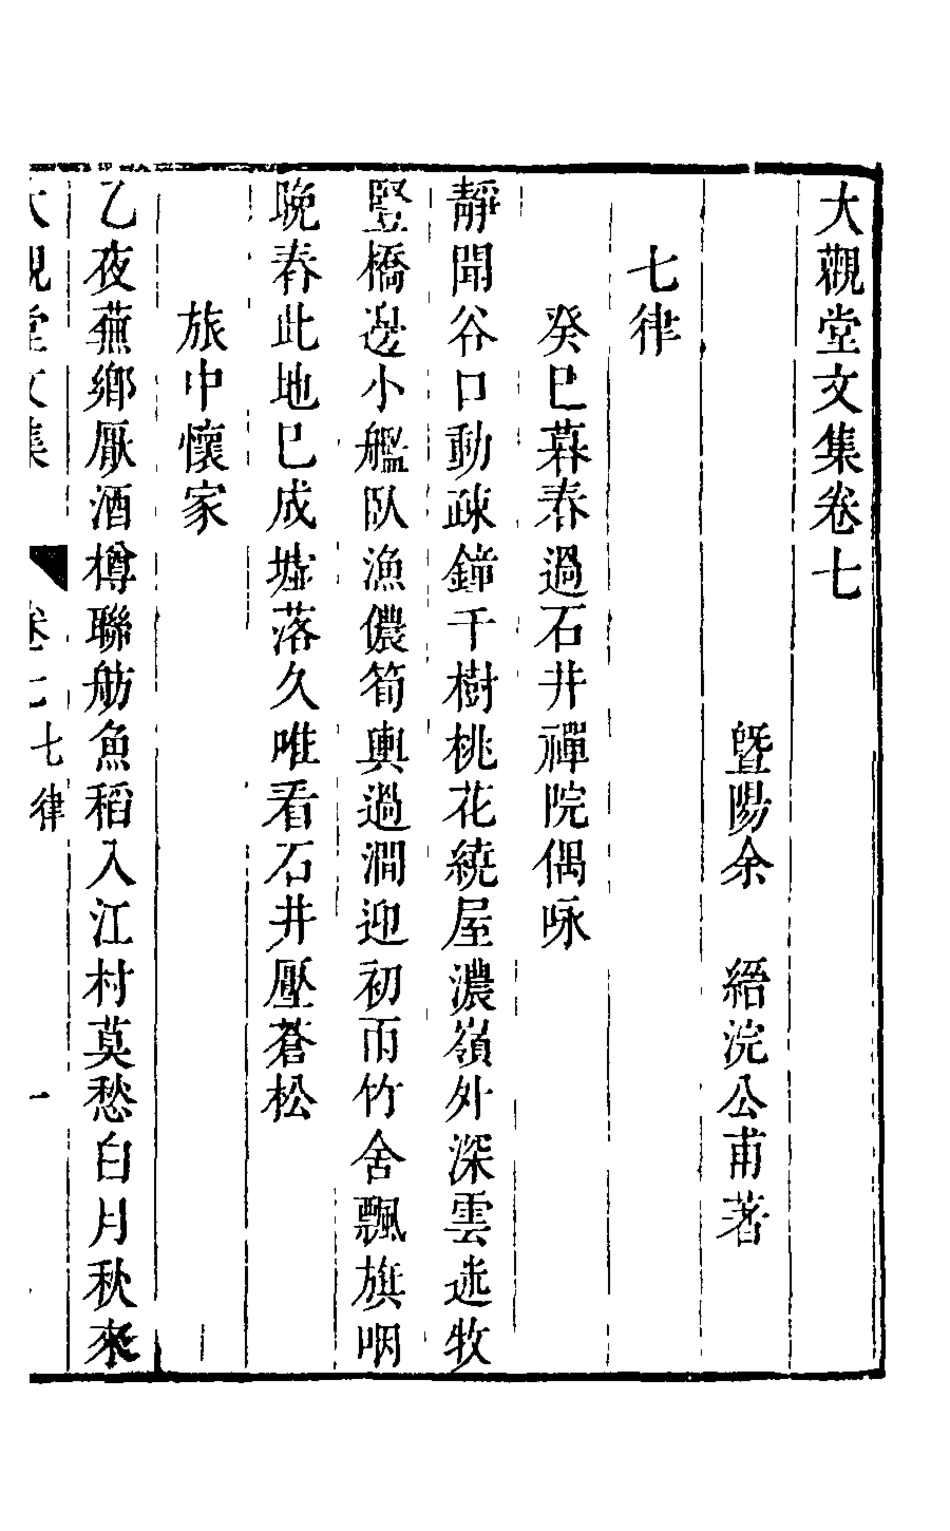 大觀堂文集卷七
暨陽余　縉浣公甫著
七律
癸巳暮春過石井禪院偶咏
靜聞谷口動疎鐘千樹桃花繞屋濃嶺外深雲迷牧
豎橋邊小艦臥漁儂筍輿過澗迎初雨竹舍飄旗咽
晩春此地已成墟落久唯看石井壓蒼松
旅中懷家
乙夜蕪鄉厭酒樽聯舫魚稻入江村莫愁白月秋來
大觀堂文集　卷七　七律　一